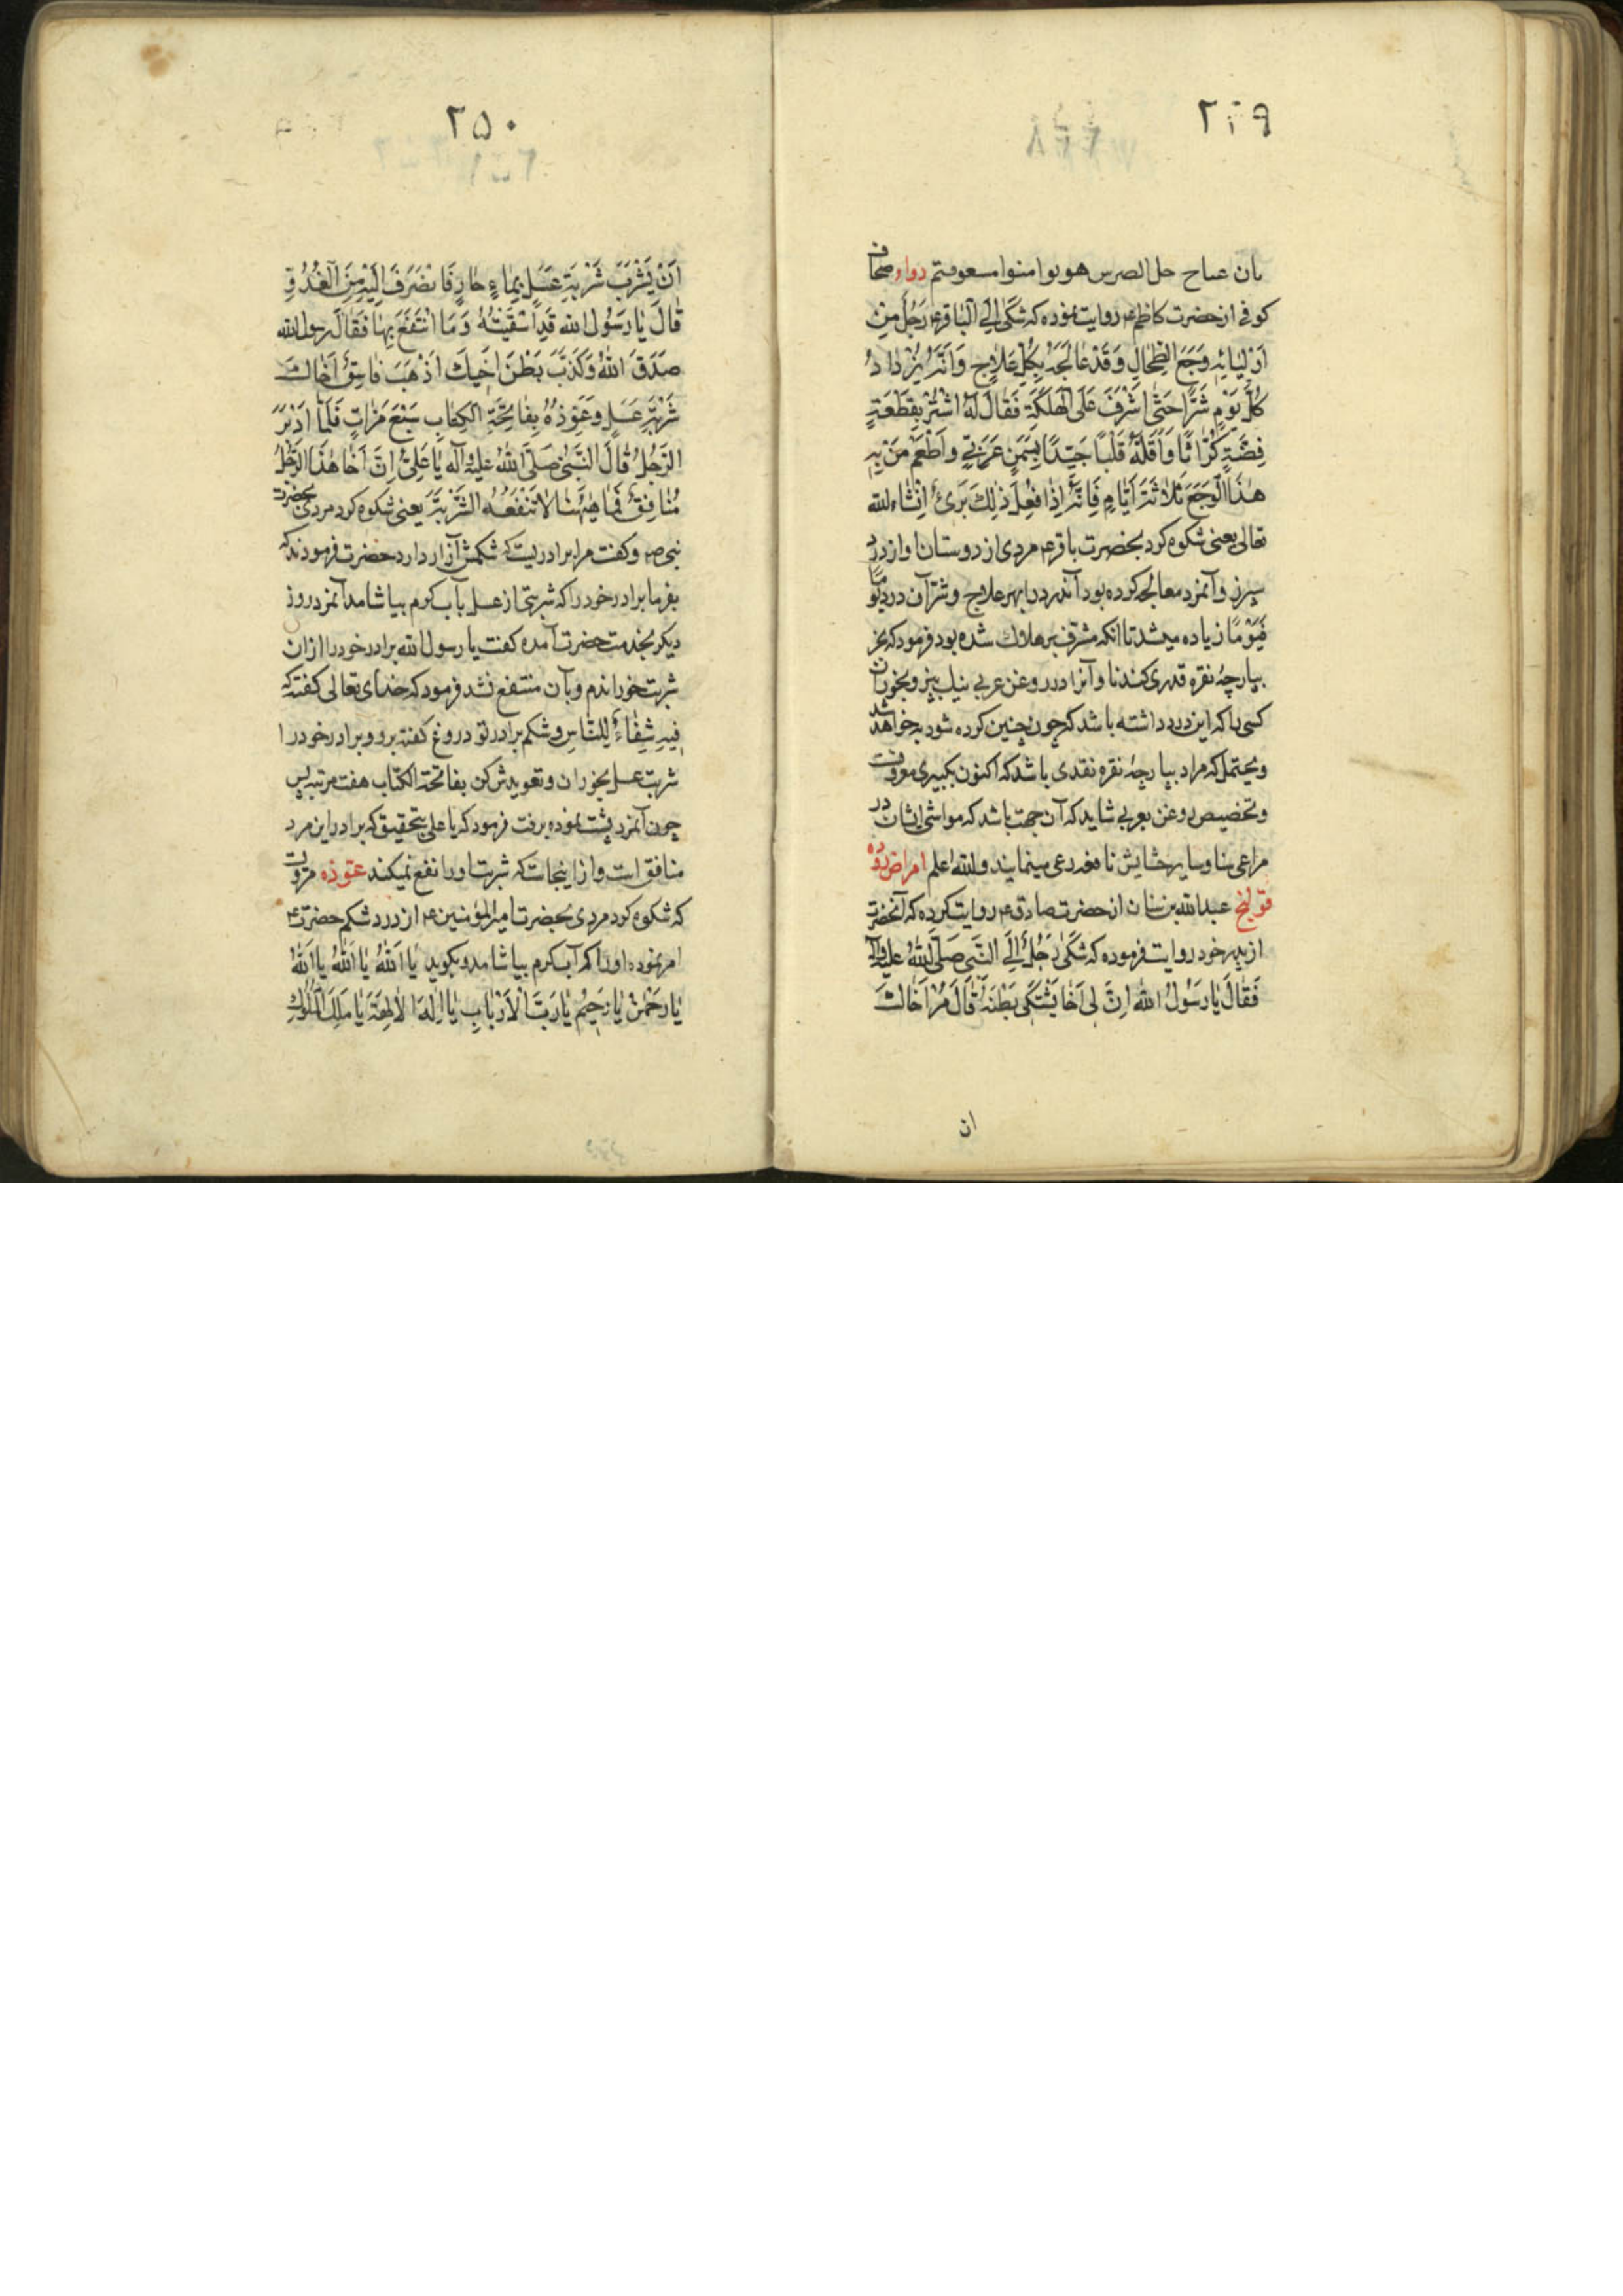 ۲۴۹
دواء صحاف
کوفی از حضرت کاظم ع روایت نموده که شَکیٰ اِلَی الْبٰاقِرِ ع رَجُلٌ مِنْ
اَوْلِیٰائِهِ وَجَعَ الطِّحٰالِ وَقَدْ عٰالَجَهُ بِکُلِّ عَلٰاجٍ وَاَنَّهُ یَزْدٰادُ
کُلَّ یَوْمٍ شَرًّا حَتّٰی اَشْرَفَ عَلَی الْهَلَکَةِ فَقٰالَ لَهُ اشْتَرِ بِقِطْعَةِ
فِضَّةٍ کُرّٰاثًا وَاَقْلَهُ قَلْبًا جَیِّدًا بِسَمْنٍ عَرَبِیٍّ وَاَطْعِمْ مَنْ بِهِ
هٰذَا الْوَجَعَ ثَلٰاثَةَ اَیّٰامٍ فَاِنَّهُ اِذٰا فُعِلَ ذٰلِكَ بَرِیَٔ اِنْشٰاءالله
تعالی یعنی شکوه کرد بحضرت باقر ع مردی از دوستان او از درد
سپرز و آنمرد معالجه کرده بود آندرد را بهر علاج و شر آن درد یومًا
فَیَوْمًا زیاده میشد تا آنکه مشرف بر هلاك شده بود فرمود که بخر
بپارچهٔ نقره قدری کندنا و آنرا در روغن عربی نیك بپز و بخوران
کسی را که این درد داشته باشد که چون چنین کرده شود به خواهد شد
و یحتمل که مراد بپارچهٔ نقره نقدی باشد که اکنون بکبیری معروفست
و تخصیص روغن بعربی شاید که آن جهت باشد که مواشی ایشان در
مراعی سنا و سایر حشایش نافعه رعی مینمایند والله اعلم امراض روده
قولنج عبدالله بن سنان از حضرت صادق ع روایت کرده که آنحضرت
از پدر خود روایت فرموده که شَکیٰ رَجُلٌ اِلَی النَّبیِ صَلَّی اللهُ عَلَیْهِ وَآلِهِ
فَقٰالَ یٰا رَسُولَ اللهِ اِنَّ لِی اَخًا یَشْتَکِی بَطْنَهُ قٰالَ مُرْ اَخٰاكَ
ان
۲۵۰
اَنْ یَشْرَبَ شَرْبَةِ عَسَلٍ بِمٰاءٍ حٰارٍ فَانْصَرَفَ اِلَیْهِ مِنَ الْغُدُوِّ
قٰالَ یٰا رَسُولَ الله قَدِ اَسْقَیْتُهُ وَمَا انْتَفَعَ بِهٰا فَقٰالَ رسولالله
صَدَقَ اللهُ وَکَذَبَ بَطْنَ اَخِیكَ اذْهَبَ فَاسْقِ اَخٰاكَ
شَرْبَةِ عَسَلٍ وَعَوِّذْهُ بِفٰاتِحَةِ الْکِتٰابِ سَبْعَ مَرّٰاتٍ فَلَمّٰا اَدْبَرَ
الرَّجُلُ قٰالَ النَّبِیُّ صَلَّی اللهُ عَلَیْهِ وَآلِهِ یٰا عَلِیُّ اِنَّ اَخٰا هٰذَا الرَّجُلُ
مُنٰافِقٌ فَمِنْ هٰیهُنٰا لٰا تَنْفَعُهُ الشَّرْبَةَ یعنی شکوه کرد مردی بحضرت
نبی ص و گفت مرا برادریست که شکمش آزار دارد حضرت فرمودند که
بفرما برادر خود را که شربتی از عسل بآب گرم بیاشامد آنمرد روز
دیگر بخدمت حضرت آمده گفت یا رسولالله برادر خود را از آن
شربت خوراندم و بآن منتفع نشد فرمود که خدای تعالی گفته که
فِیهِ شِفٰاءٌ لِلنّٰاسِ و شکم برادر تو دروغ گفته برو و برادر خود را
شربت عسل بخوران و تعویذش کن بفاتحة الکتاب هفت مرتبه پس
چون آنمرد پشت نموده برفت فرمود که یا علی بتحقیق که برادر این مرد
منافق است و از اینجاست که شربت او را نفع نمیکند عوذه مرویست
که شکوه کرد مردی بحضرت امیرالمؤمنین ع از درد شکم حضرت ع
امر نموده او را که آب گرم بیاشامد و بگوید یٰا اَللهُ یٰا اَللهُ یٰا اَللهُ
یٰا رَحْمٰنُ یٰا رَحِیمُ یٰا رَبَّ الْاَرْبٰابِ یٰا اِلٰهَ الْاٰلِهَةِ یٰا مَلِكَ الْمُلُوكِ